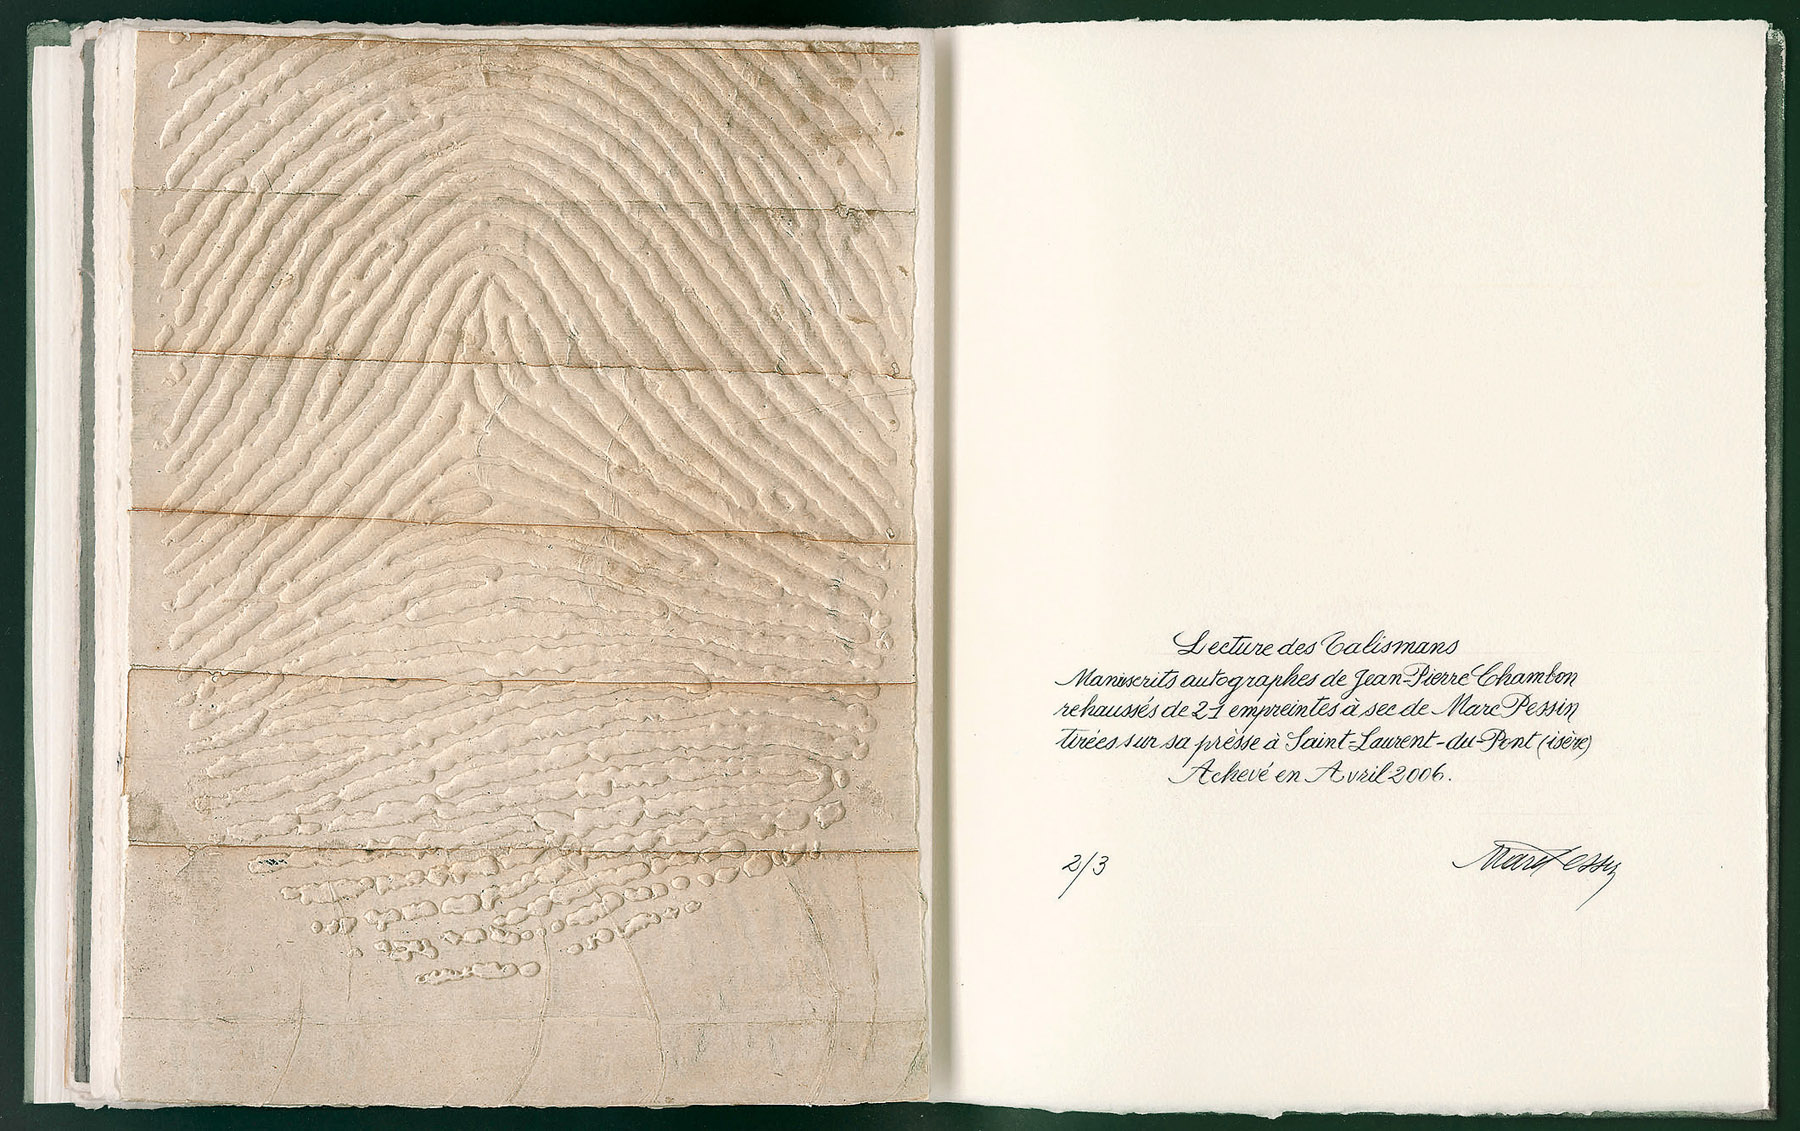 Lecture des Talismans
Manuscrits autographes de Jean-Pierre Chambon
rehaussés de 21 empreintes à sec de Marc Pessin
tirées sur sa presse à Saint-Laurent-du-Pont (isère)
Achevé en Avril 2006.
2/3
Marc Pessin